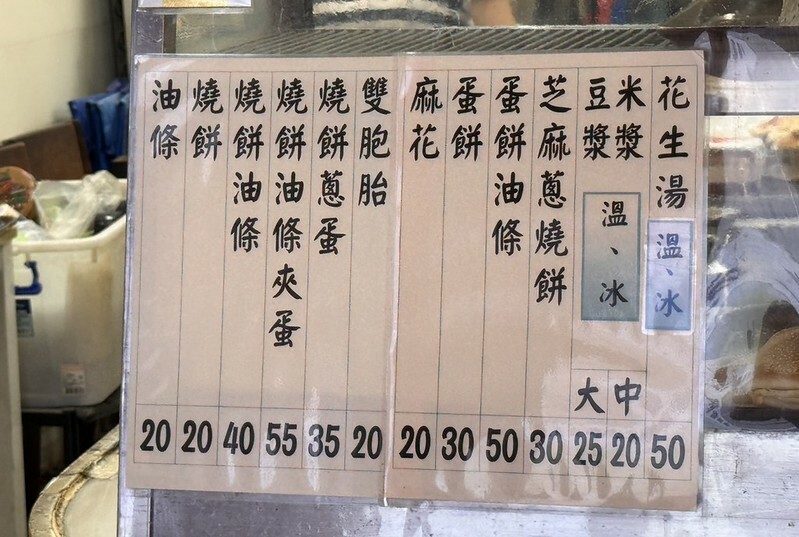 花生湯 溫、冰 50
米漿 豆漿 溫、冰
中 20
大 25
芝麻蔥燒餅 30
蛋餅油條 50
蛋餅 30
麻花 20
雙胞胎 20
燒餅蔥蛋 35
燒餅油條夾蛋 55
燒餅油條 40
燒餅 20
油條 20